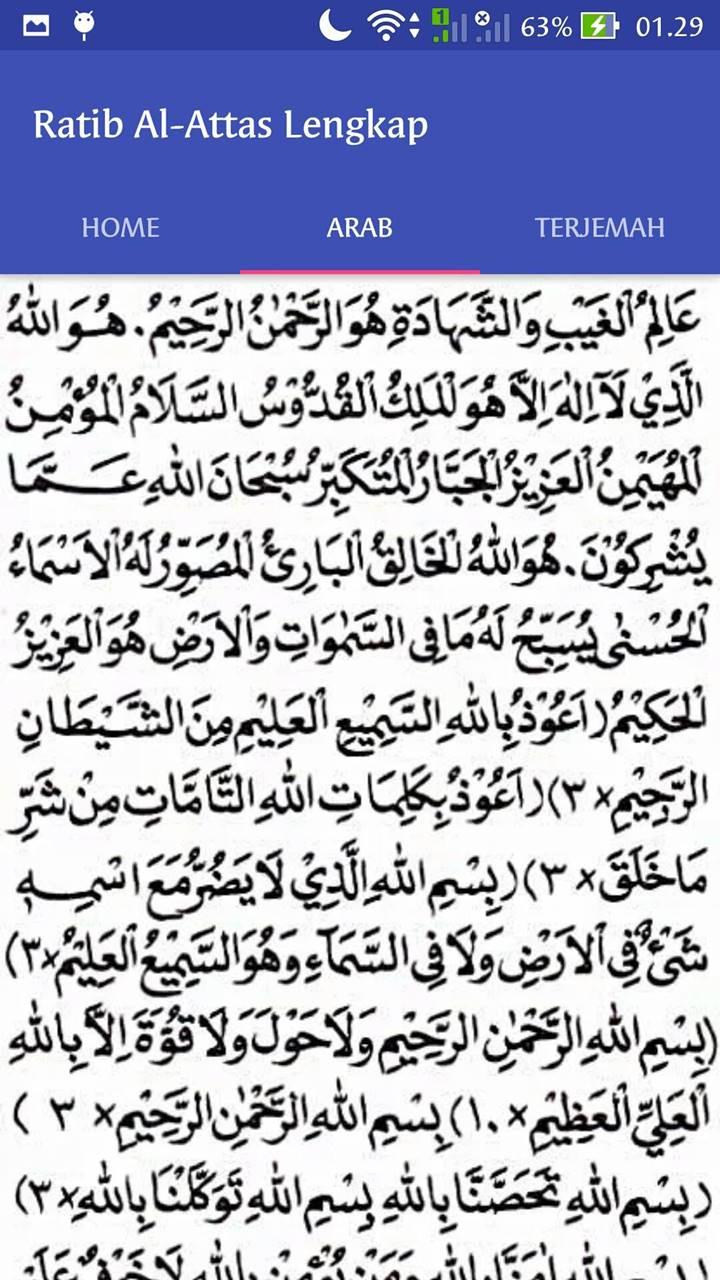 63% 01.29
Ratib Al-Attas Lengkap
HOME ARAB TERJEMAH
عَالِمُ الْغَيْبِ وَالشَّهَادَةِ هُوَ الرَّحْمٰنُ الرَّحِيْمُ. هُوَ اللهُ
الَّذِيْ لَآ اِلٰهَ اِلَّا هُوَ الْمَلِكُ الْقُدُّوْسُ السَّلَامُ الْمُؤْمِنُ
الْمُهَيْمِنُ الْعَزِيْزُ الْجَبَّارُ الْمُتَكَبِّرُ سُبْحَانَ اللهِ عَمَّا
يُشْرِكُوْنَ. هُوَ اللهُ الْخَالِقُ الْبَارِئُ الْمُصَوِّرُ لَهُ الْاَسْمَاءُ
الْحُسْنٰى يُسَبِّحُ لَهُ مَا فِى السَّمٰوَاتِ وَالْاَرْضِ هُوَ الْعَزِيْزُ
الْحَكِيْمُ (اَعُوْذُ بِاللهِ السَّمِيْعِ الْعَلِيْمِ مِنَ الشَّيْطَانِ
الرَّجِيْمِ × ٣) (اَعُوْذُ بِكَلِمَاتِ اللهِ التَّامَّاتِ مِنْ شَرِّ
مَا خَلَقَ × ٣) (بِسْمِ اللهِ الَّذِيْ لَا يَضُرُّ مَعَ اسْمِهِ
شَىْءٌ فِى الْاَرْضِ وَلَا فِى السَّمَآءِ وَهُوَ السَّمِيْعُ الْعَلِيْمُ ×٣)
(بِسْمِ اللهِ الرَّحْمٰنِ الرَّحِيْمِ وَلَا حَوْلَ وَلَا قُوَّةَ اِلَّا بِاللهِ
الْعَلِيِّ الْعَظِيْمِ × ١٠) بِسْمِ اللهِ الرَّحْمٰنِ الرَّحِيْمِ × ٣ )
(بِسْمِ اللهِ تَحَصَّنَّا بِاللهِ بِسْمِ اللهِ تَوَكَّلْنَا بِاللهِ ×٣)